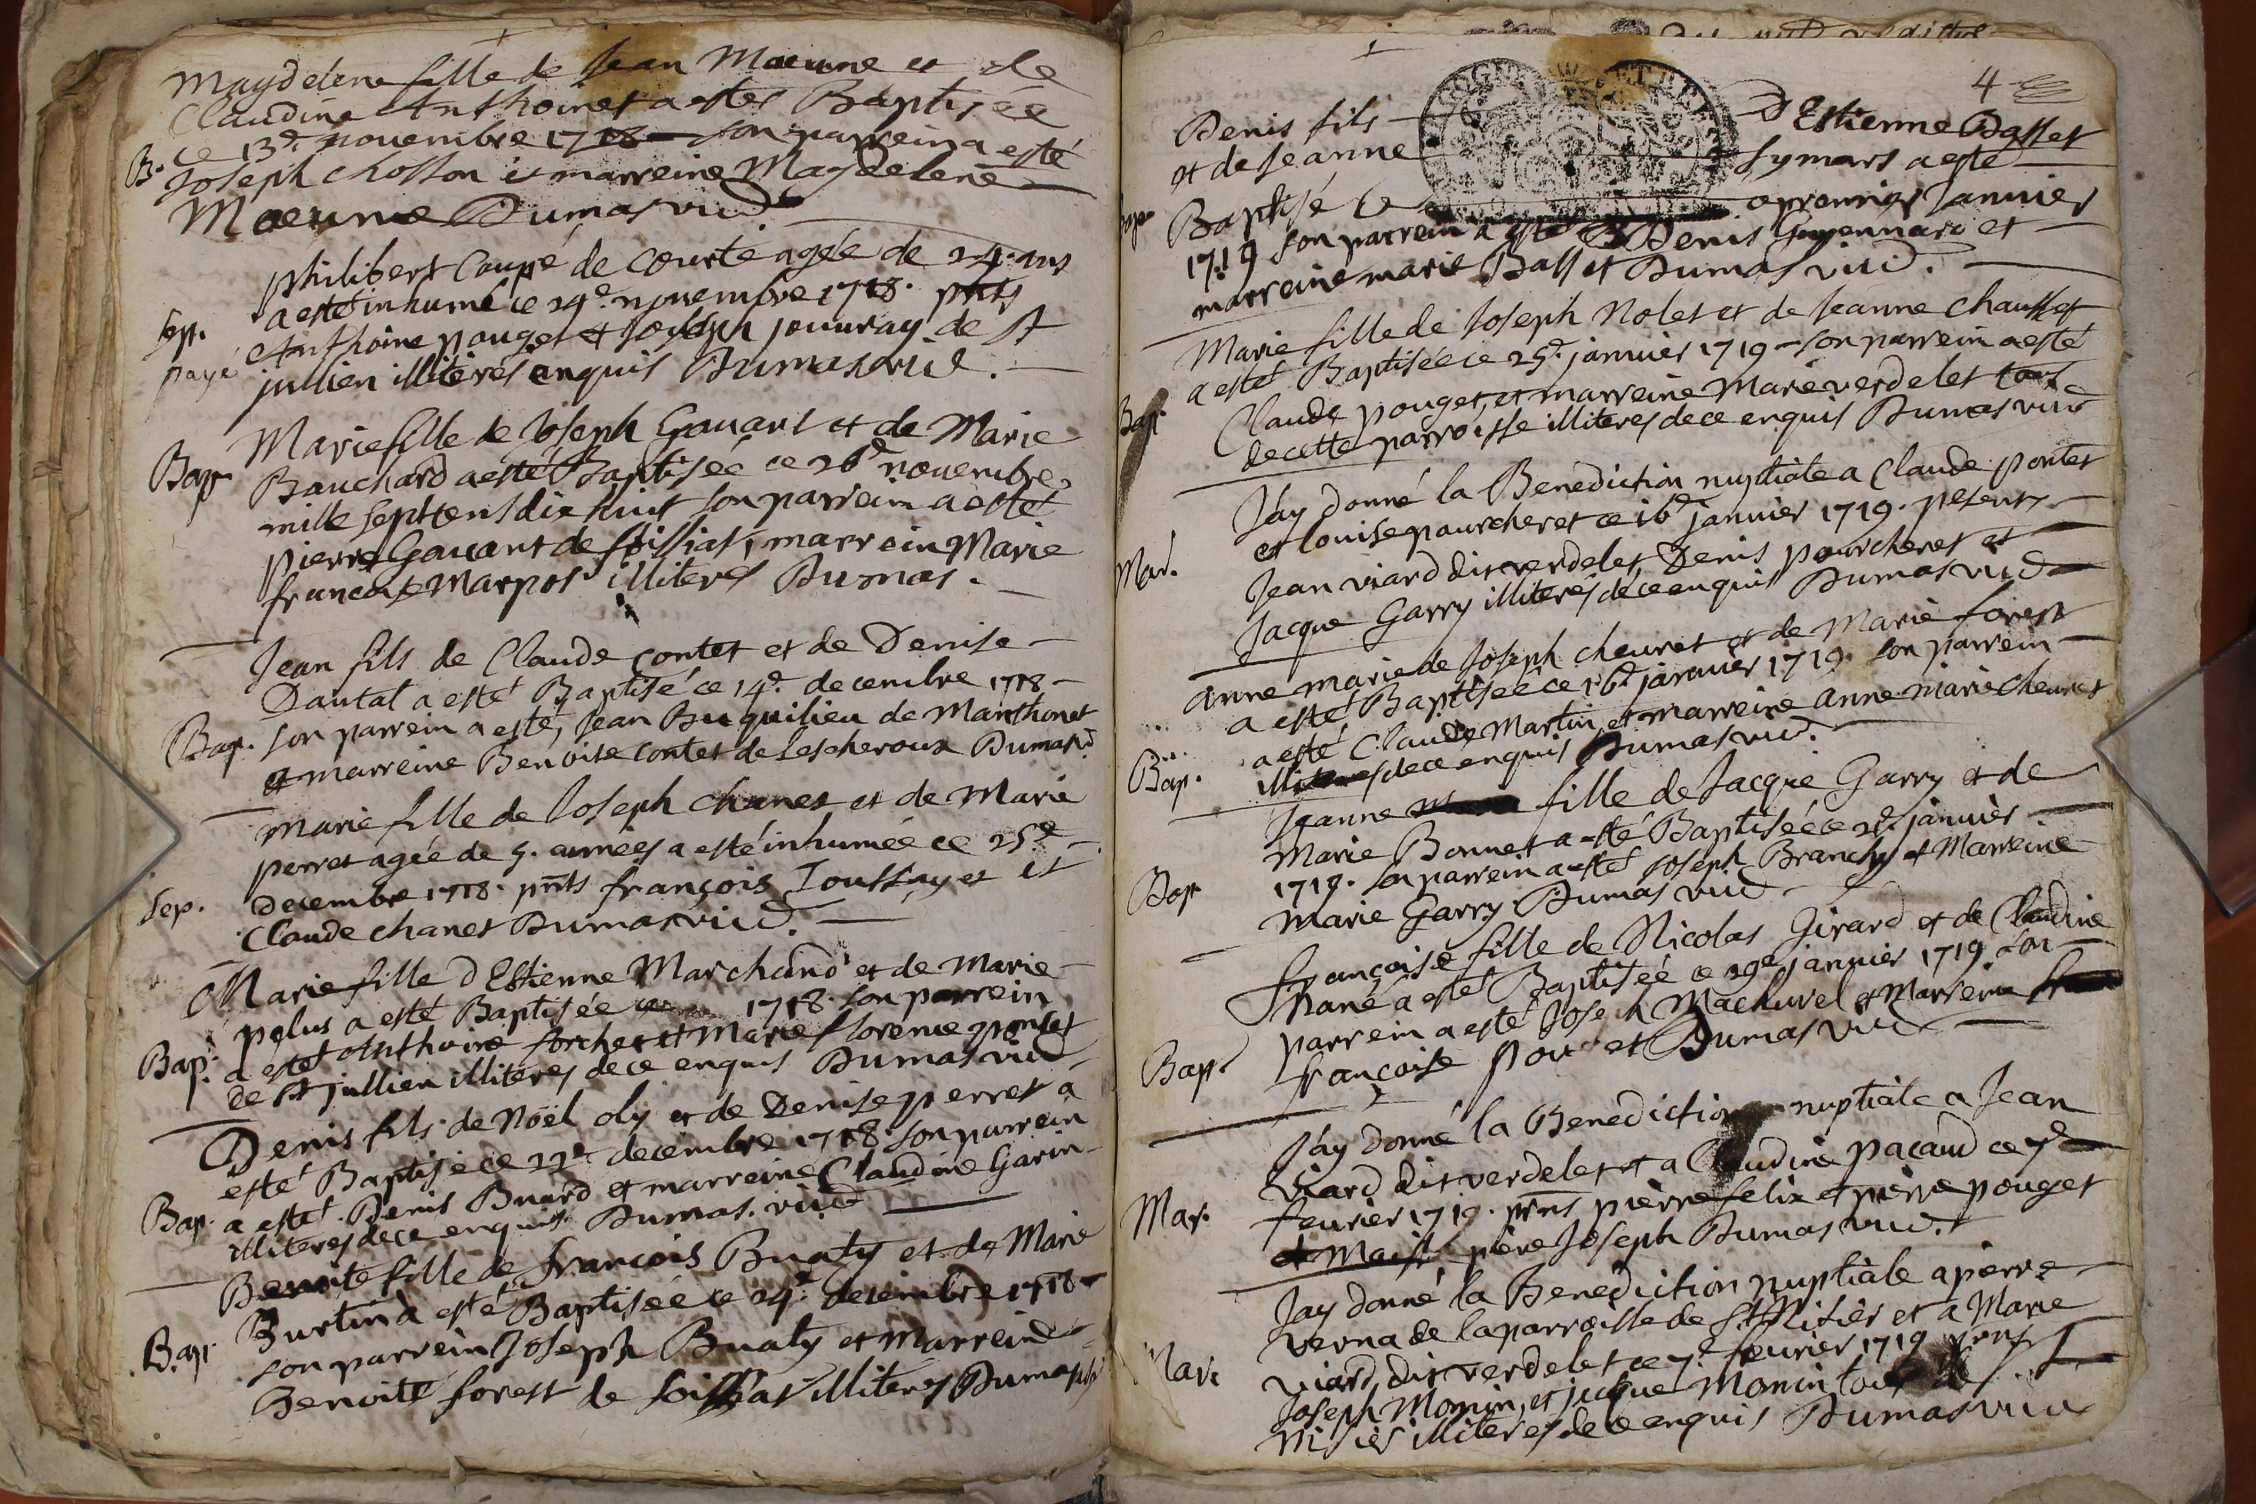 Magdelene fille de Jean Maeune et de
Claudine Anthoinet a estes Baptisée
B. ce 13e. novembre 1718 son parrein a esté
Joseph chosson et marreine Magdelene
Maeune Dumas vic.
philibert Coupé de Courte agée de 24. ans
a esté inhumé ce 24e. novembre 1718. pnts
sep. Anthoine pouget et Joseph jouuray de St
payé jullien illiterés enquis Dumas vic.
Marie fille de Joseph Gauart et de Marie
Bap. Bauchard a esté Baptisée ce 26e novembre
mille sept cens dix huit son parrein a esté
pierre Gauant de foissiat, marrein Marie
francoise Marpos illiteres Dumas.
Jean fils de Claude contet et de Denise
Dautal a esté Baptisé ce 14e. decembre 1718
Bap. son parrein a esté, Jean Buquilieu de Manthonet
et marreine Benoite contet de Lescheroux Dumas
Marie fille de Joseph chanet et de Marie
perret agée de 5. années a esté inhumée ce 25e
sep. Decembre 1718. pnts françois Toussuyet et
Claude chanet Dumas vic.
Marie fille d'Estienne Marchand et de Marie
pelus a esté Baptisée ce 1718. son parrein
Bap. a esté Anthoine forchet et Marie florence
de St jullien illiteres de ce enquis Dumas vic
Denis fils de Noël oly et de Denise perret a
esté Baptisé ce 22e decembre 1718 son parrein
Bap. a esté Denis Buard et marreine Claudine Garin
illiteres de ce enquis Dumas. vic
Benoite fille de françois Buaty et de Marie
Burtin a esté Baptisée ce 24e decembre 1718
Bap. son parrein Joseph Buaty et Marreine
Benoite forest de foissiat illiteres Dumas
4
Denis fils D'Estienne Basset
et de Jeanne Symars a esté
Bap. Baptisé le premier Janvier
1719 son parrein a esté Denis Guyennard et
marreine marie Basset Dumas vic.
Marie fille de Joseph Nolet et de Jeanne chausset
a esté Baptisée ce 25e. janvier 1719 son parrein a esté
Bap. Claude pouget, et marreine Marie verdelet
de cette parroisse illiteres de ce enquis Dumas vic
J'ay donné la Benediction nuptiale a Claude pontet
et louise paurcheret ce 16e janvier 1719. pesents
Mar. Jean viard dit verdelet, Denis pourcheret et
Jacque Garry illiterés de ce enquis Dumas vic
anne marie de Joseph cheuret et de Marie forest
a esté Baptisée ce 16e janvier 1719. son parrein
a esté Claude Martin et marreine anne marie cheuret
Bap. illiteres de ce enquis Dumas vic.
Jeanne fille de Jacque Garry et de
Marie Bonnet a esté Baptisée ce janvier
Bap 1719. son parrein a esté Joseph Branchy et Marreine
Marie Garry Dumas vic
françoise fille de Nicolas Girard et de Claudine
Nané a esté Baptisée ce 29e janvier 1719 son
parrein a esté Joseph Machurel et Marreine
Bap. françoise pouget Dumas vic
J'ay donné la Benediction nuptiale a Jean
viard dit verdelet et a Claudine pacaud ce 7e
Mar. fevrier 1719. pnts pierre felix et pierre pouget
piere Joseph Dumas vic.
Jay donné la Benediction nuptiale a pierre
verna de la parroisse de St Nisier et a Marie
Mar. viard dit verdelet ce 7e fevrier 1719 pnts
Joseph Monin, et jacque Monin tous de St
Nisier illiteres de ce enquis Dumas vic